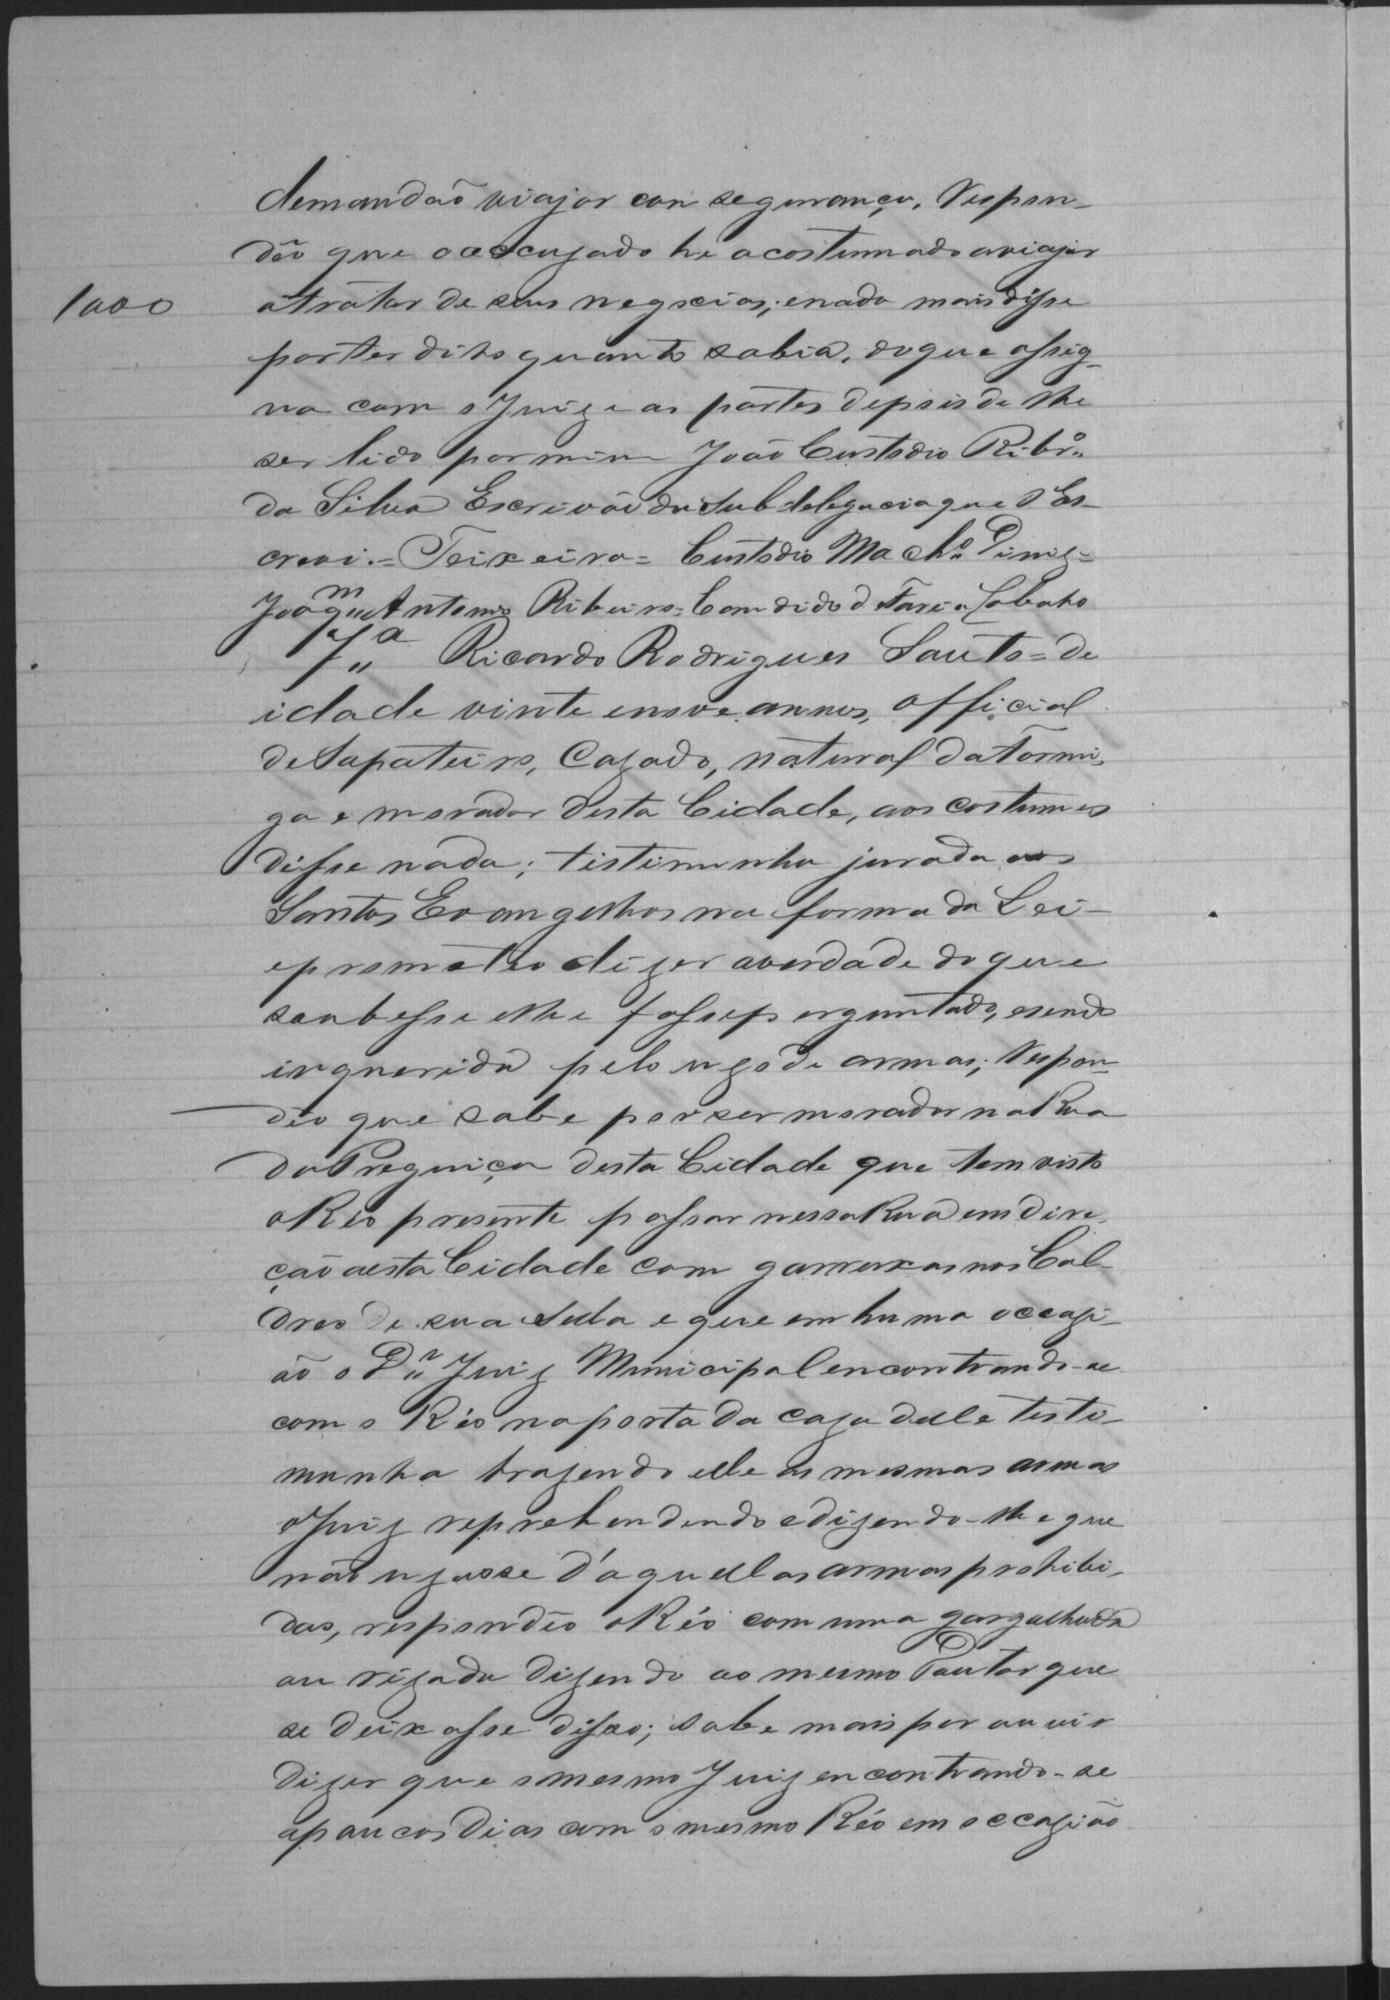 demandaõ viajar com segurança. Respon-
dêo que o accuzado he acostumado a viajar
1000
a tratar de seus negocios; e nada mais disse
por ter dito quanto sabia, do que assig-
na com o Juiz e as partes depois de lhe
ser lido por mim João Custodio Ribr.º
da Silva Escrivão da Subdelegacia que o Es-
crevi. = Teixeira = Custodio Mach.º Diniz =
Joaq.m Antonio Ribeiro = Candido d Faria Lobato
7.ª Ricardo Rodrigues Souto = de
idade vinte enove annos, official
de Sapateiro, Cazado, natural da Formi-
ga e morador desta Cidade, aos costumes
disse nada; testimunha jurada aos
Santos Evangelhos na forma da Lei -
e prometteo dizer a verdade do que
soubesse e lhe fosse perguntado, e sendo
inquerida pelo uzo de armas; Respon-
dêo que sabe por ser morador na Rua
da Preguiça desta Cidade que tem visto
o Réo presente passar nessa Rua em dire-
ção a esta Cidade com garruxas nos Col-
dres de sua Sella e que em huma occazi-
ão o D.r Juiz Municipal encontrando-se
com o Réo na porta da caza delle testi-
munha trazendo elle as mesmas armas
o Juiz reprehendendo e dizendo-lhe que
não uzasse d'aquellas armas prohibi-
das, respondêo o Réo com uma gargalhada
ou rizada dizendo ao mesmo Doutor que
se deixasse disso; sabe mais por ouvir
dizer que o mesmo Juiz encontrando-se
a poucos dias com o mesmo Réo em occazião